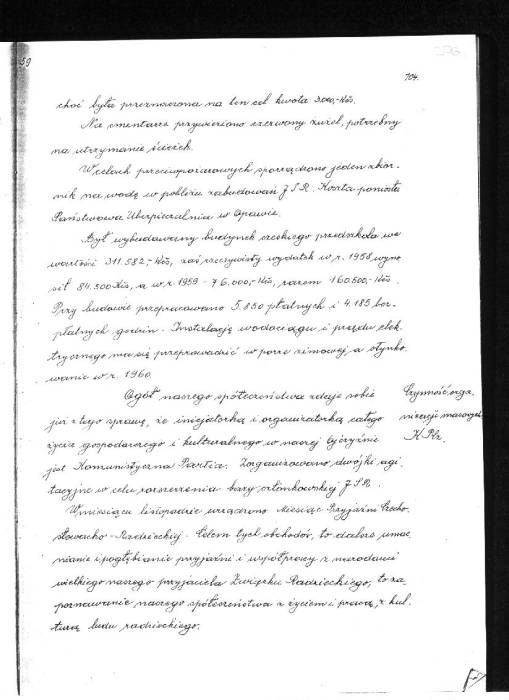 59
296
104.
choć była przeznaczona na ten cel kwota 3.000,-Kčs.
Na cmentarz przywieziono czerwony żużel, potrzebny
na utrzymanie ścieżek.
W celach przeciwpożarowych sporządzono jeden zbior-
nik na wodę w pobliżu zabudowań JSR. Koszta poniosła
Państwowa Ubezpieczalnia w Opawie.
Był wybudowany budynek czeskiego przedszkola we
wartości 311.582,-Kčs, zaś rzeczywisty wydatek w r. 1958 wyno-
sił 84.500 Kčs, a w r. 1959 - 76.000,-Kčs, razem 160.500,-Kčs.
Przy budowie przepracowano 5.850 płatnych i 4.185 bez-
płatnych godzin. Instalację wodociągu i prądu elek-
trycznego ma się przeprowadzić w porze zimowej, a otynko-
wanie w r. 1960.
Ogół naszego społeczeństwa zdaje sobie
już z tego sprawę, że inicjatorką i organizatorką całego
życia gospodarczego i kulturalnego w naszej Ojczyźnie
jest Komunistyczna Partia. Zorganizowano dwójki agi-
tacyjne w celu rozszerzenia bazy członkowskiej JSR.
Czynność orga-
nizacji masowych
K Plz.
W miesiącu listopadzie urządzono Miesiąc Przyjaźni Czecho-
słowacko-Radzieckiej. Celem tych obchodów, to dalsze umac-
nianie i pogłębianie przyjaźni i współpracy z narodami
wielkiego naszego przyjaciela Związku Radzieckiego, to za-
poznawanie naszego społeczeństwa z życiem i pracą, z kul-
turą ludu radzieckiego.